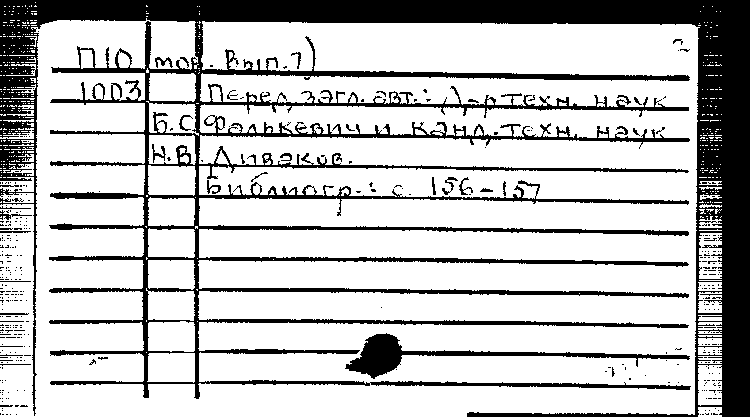 2
П10 мов. Вып. 7)
1003 Перед загл. авт.: Д-р техн. наук
Б.С. Фалькевич и канд. техн. наук
Н.В. Диваков.
Библиогр.: с. 156-157